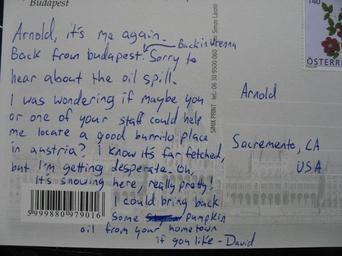 Budapest
Arnold, it's me again.
Back from budapest. Sorry to
Back in Vienna
hear about the oil spill.
I was wondering if maybe you
or one of your staff could help
me locate a good burrito place
in austria? I know it's far fetched,
but I'm getting desperate. Oh,
it's snowing here, really pretty!
I could bring back
some pumpkin
oil from your hometown
if you like - David
Arnold
Sacremento, CA
USA
140
ÖSTERR
SIMIX PRINT
5 999880 979016